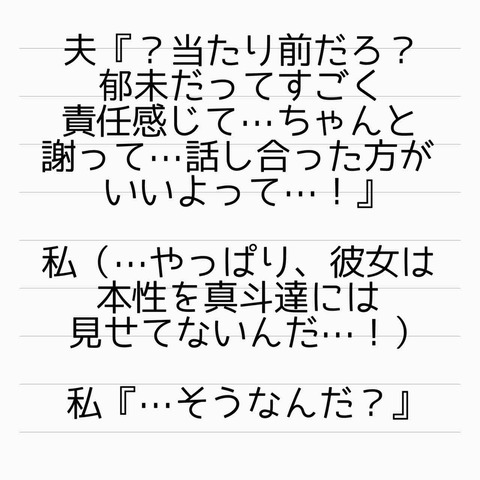 夫『？当たり前だろ？
郁未だってすごく
責任感じて…ちゃんと
謝って…話し合った方が
いいよって…！』
私（…やっぱり、彼女は
本性を真斗達には
見せてないんだ…！）
私『…そうなんだ？』